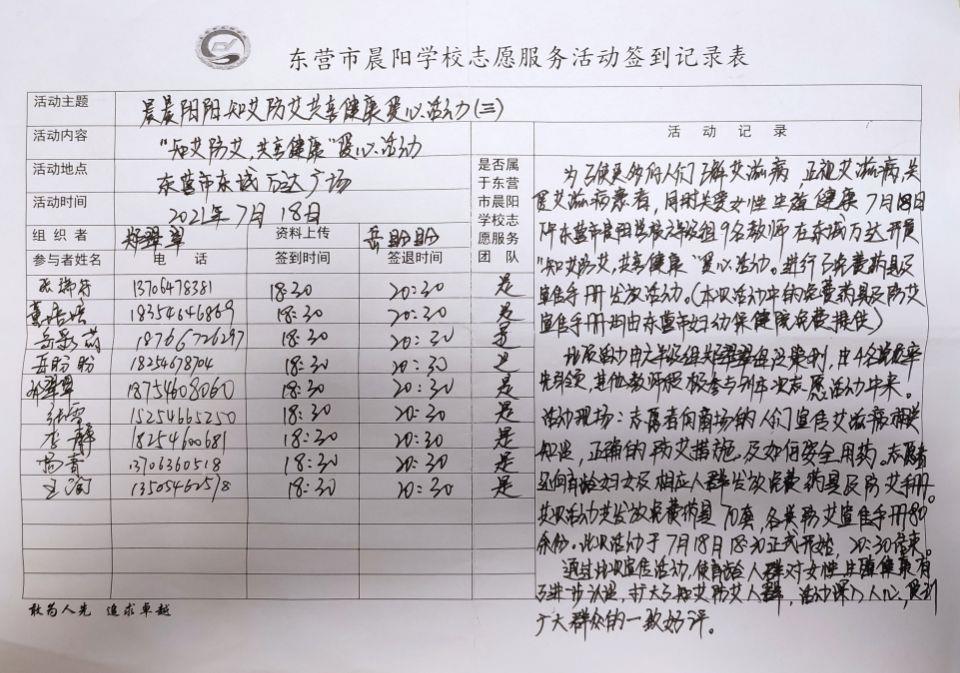 东营市晨阳学校志愿服务活动签到记录表
活动主题 晨晨阳阳知艾防艾共享健康爱心活动(三)
活动内容 "知艾防艾,共享健康"爱心活动
活动地点 东营市东城万达广场
活动时间 2021年7月18日
组织者 郑翠翠 资料上传 岳盼盼
是否属于东营市晨阳学校志愿服务团队
参与者姓名 电话 签到时间 签退时间
13706478381 18:30 20:30 是
18354646869 18:30 20:30 是
18766726297 18:30 20:30 是
岳盼盼 18254678704 18:30 20:30 是
郑翠翠 18754608060 18:30 20:30 是
张雪 15254665250 18:30 20:30 是
李静 18254600681 18:30 20:30 是
杨青 13706360518 18:30 20:30 是
13505462578 18:30 20:30 是
敢为人先 追求卓越
活动记录
为了使更多的人们了解艾滋病,正视艾滋病,关
爱艾滋病患者,同时关爱女性生殖健康7月18日
东营市晨阳学校六年级组9名教师在东城万达开展
"知艾防艾,共享健康"爱心活动。进行了免费药具及
宣传手册发放活动。(本次活动中的免费药具及防艾
宣传手册均由东营市妇幼保健院免费提供)
此次活动由六年级组郑翠翠组织策划,由4名党员率
先引领,其他教师积极参与到本次志愿活动中来。
活动现场:志愿者向商场的人们宣传艾滋病相关
知识,正确的防艾措施,及如何安全用药。志愿者
还向育龄妇女及相应人群发放免费药具及防艾手册。
此次活动共发放免费药具70套,各类防艾宣传手册80
余份。此次活动于7月18日18:30正式开始,20:30结束。
通过此次宣传活动,使育龄人群对女性生殖健康有
了进一步认识,扩大了知艾防艾人群,活动深入人心,受到
广大群众的一致好评。